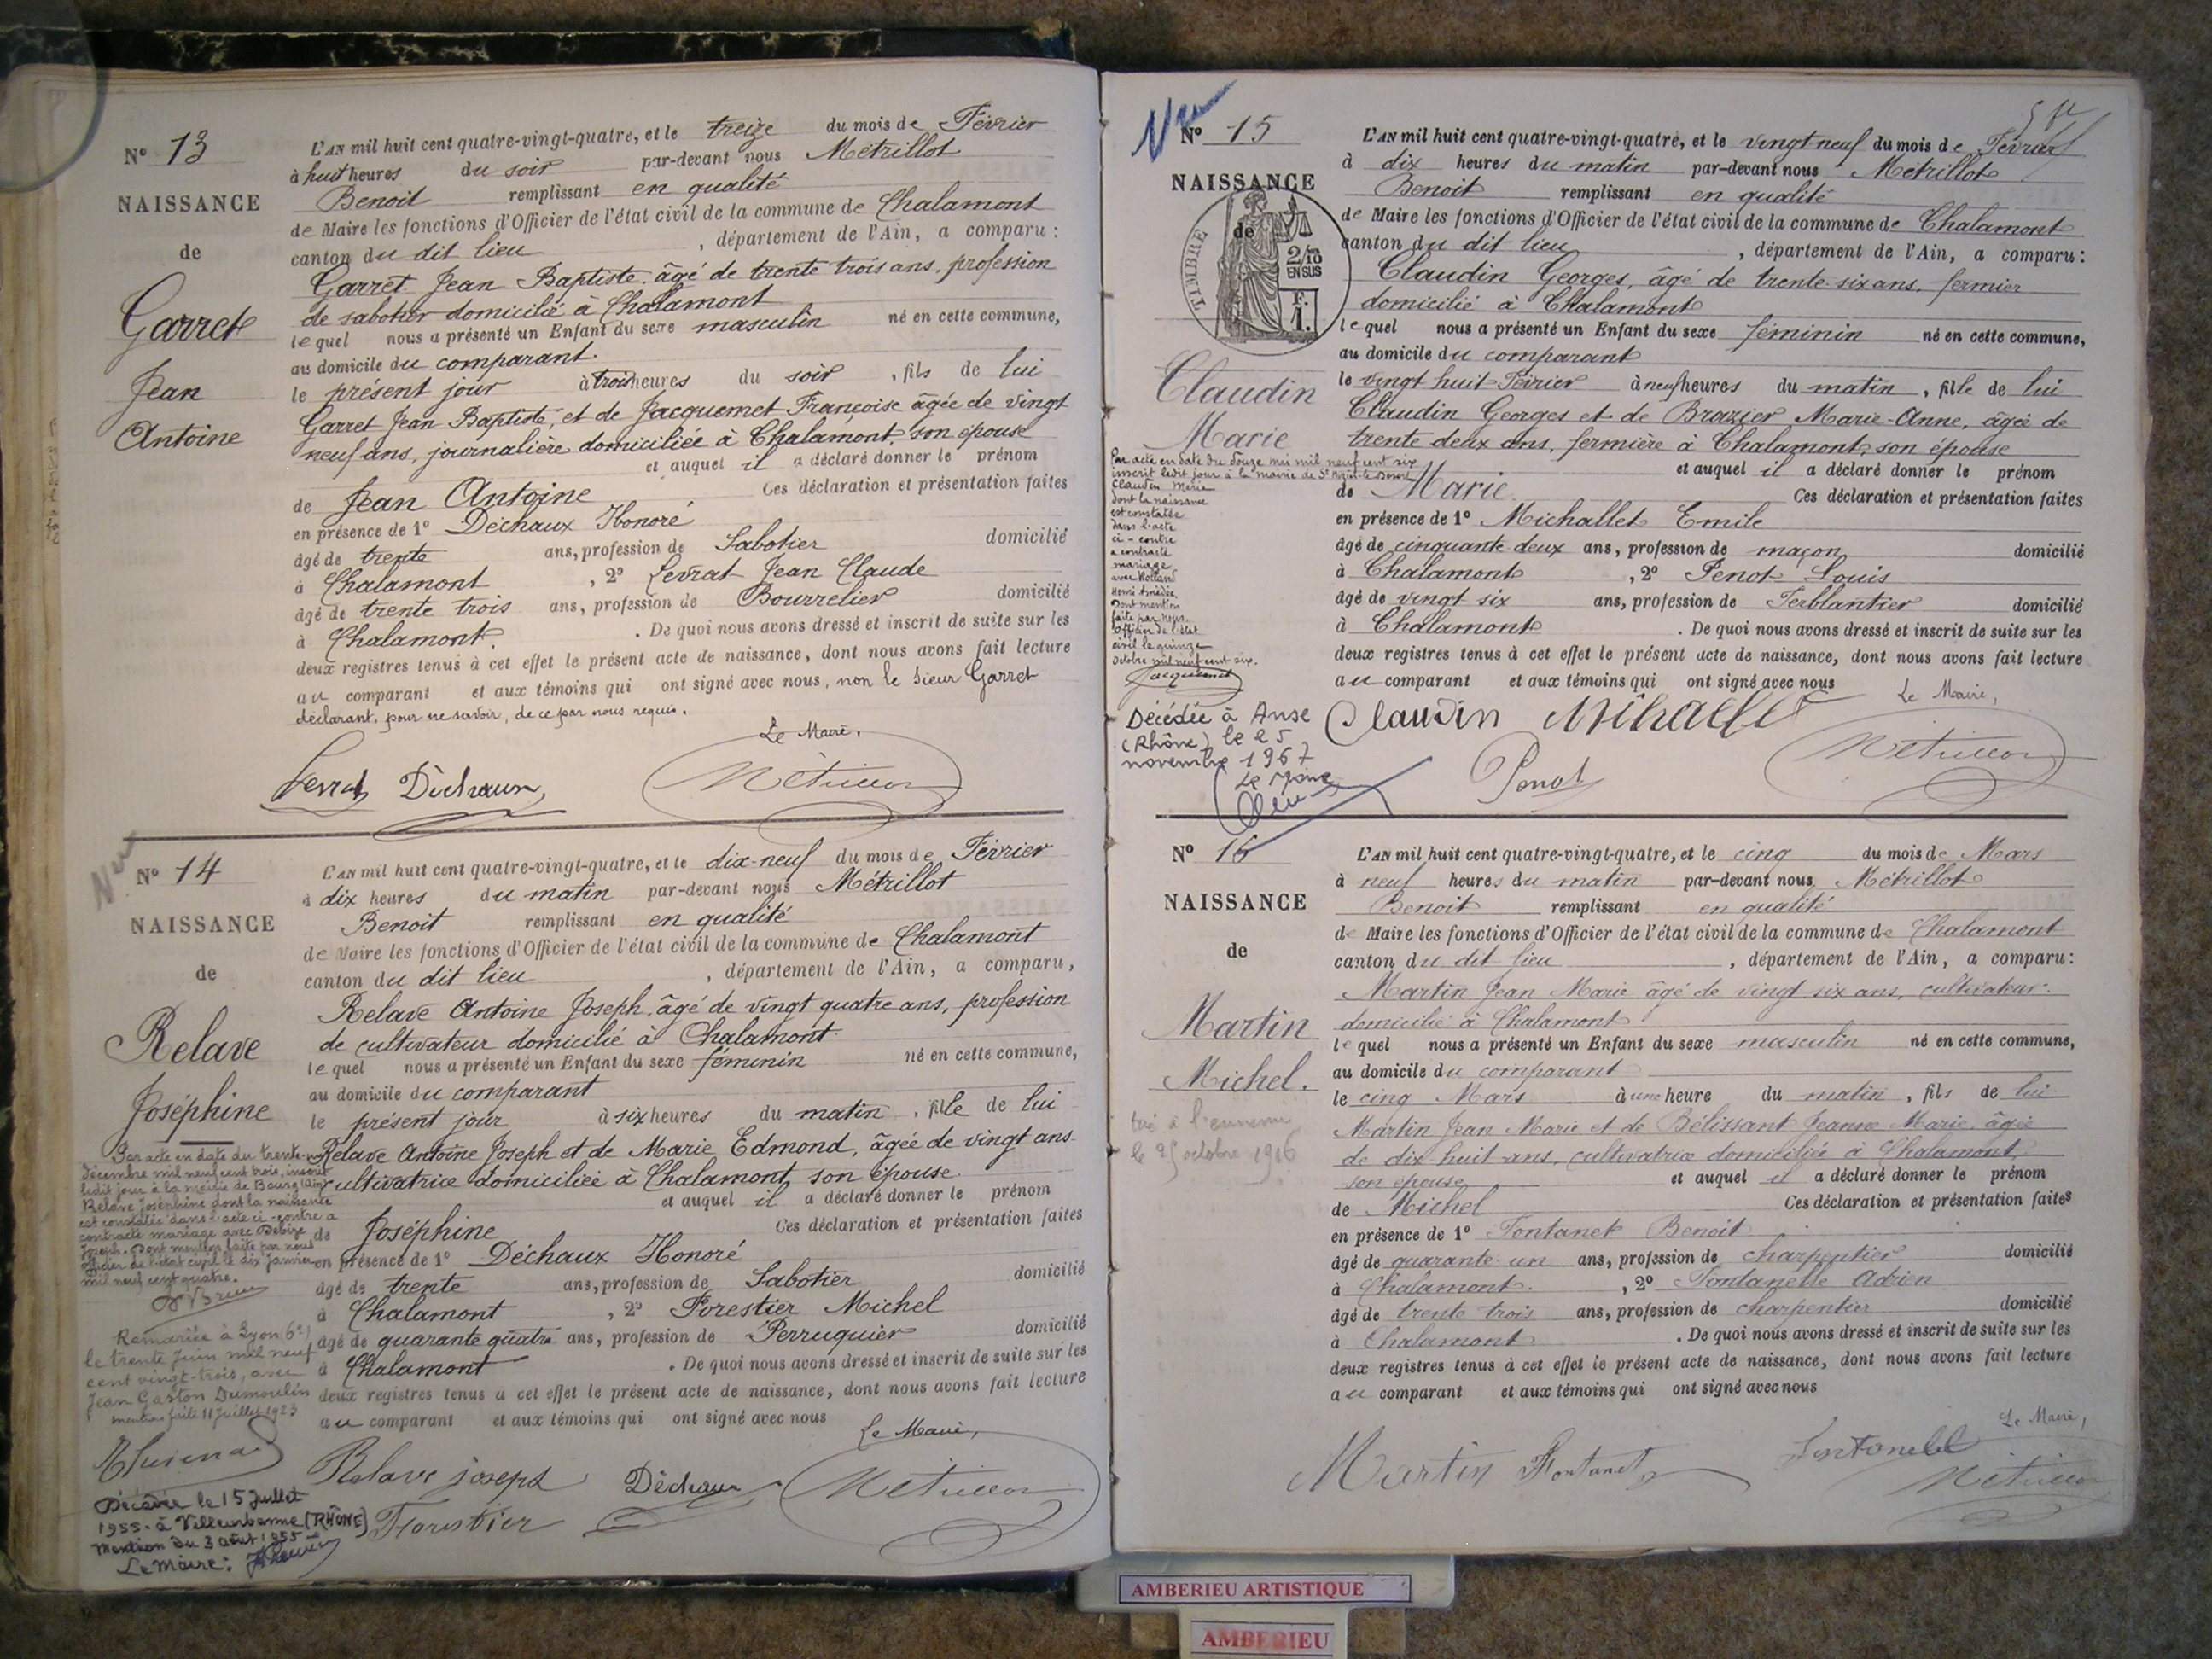 N° 13
NAISSANCE
de
Garret
Jean
Antoine
L'AN mil huit cent quatre-vingt-quatre, et le treize du mois de Février
à huit heures du soir par-devant nous Métrillot
Benoit remplissant en qualité
de Maire les fonctions d'Officier de l'état civil de la commune de Chalamont
canton du dit lieu , département de l'Ain, a comparu :
Garret Jean Baptiste, âgé de trente trois ans, profession
de sabotier domicilié à Chalamont
lequel nous a présenté un Enfant du sexe masculin né en cette commune,
au domicile du comparant
le présent jour à trois heures du soir , fils de lui
Garret Jean Baptiste, et de Jacquemet Françoise âgée de vingt
neuf ans, journalière domiciliée à Chalamont, son épouse
et auquel il a déclaré donner le prénom
de Jean Antoine Ces déclaration et présentation faites
en présence de 1° Déchaux Honoré
âgé de trente ans, profession de Sabotier domicilié
à Chalamont , 2° Levrat Jean Claude
âgé de trente trois ans, profession de Bourrelier domicilié
à Chalamont. . De quoi nous avons dressé et inscrit de suite sur les
deux registres tenus à cet effet le présent acte de naissance, dont nous avons fait lecture
au comparant et aux témoins qui ont signé avec nous, non le sieur Garret
déclarant, pour ne savoir, de ce par nous requis.
Le Maire,
Levrat Déchaux Métrillot
N° 14
NAISSANCE
de
Relave
Joséphine
L'AN mil huit cent quatre-vingt-quatre, et le dix-neuf du mois de Février
à dix heures du matin par-devant nous Métrillot
Benoit remplissant en qualité
de Maire les fonctions d'Officier de l'état civil de la commune de Chalamont
canton du dit lieu , département de l'Ain, a comparu,
Relave Antoine Joseph, âgé de vingt quatre ans, profession
de cultivateur domicilié à Chalamont
lequel nous a présenté un Enfant du sexe féminin né en cette commune,
au domicile du comparant
le présent jour à six heures du matin , fille de lui
Relave Antoine Joseph et de Marie Edmond, âgée de vingt ans
cultivatrice domiciliée à Chalamont, son épouse
et auquel il a déclaré donner le prénom
de Joséphine Ces déclaration et présentation faites
en présence de 1° Déchaux Honoré
âgé de trente ans, profession de Sabotier domicilié
à Chalamont , 2° Forestier Michel
âgé de quarante quatre ans, profession de Perruquier domicilié
à Chalamont . De quoi nous avons dressé et inscrit de suite sur les
deux registres tenus à cet effet le présent acte de naissance, dont nous avons fait lecture
au comparant et aux témoins qui ont signé avec nous
Le Maire,
Relave joseph Déchaux Métrillot
Forestier
Par acte en date du trente-un
Décembre mil neuf cent trois, inscrit
ledit jour à la mairie de Bourg (Ain)
Relave Joséphine dont la naissance
est constatée dans l'acte ci-contre a
contracté mariage avec Debize
Joseph. Dont mention faite par nous
officier de l'état civil le dix janvier
mil neuf cent quatre.
Remariée à Lyon 6e)
le trente Juin mil neuf
cent vingt-trois, avec
Jean Gaston Dumoulin
mention faite 11 Juillet 1923
Décédée le 15 Juillet
1955 - à Villeurbanne (RHÔNE)
Mention du 3 août 1955
Le Maire:
N° 15
NAISSANCE
de
TIMBRE
2/10
EN SUS
F.
1.
Claudin
Marie
L'AN mil huit cent quatre-vingt-quatre, et le vingt neuf du mois de Février
à dix heures du matin par-devant nous Métrillot
Benoit remplissant en qualité
de Maire les fonctions d'Officier de l'état civil de la commune de Chalamont
canton du dit lieu , département de l'Ain, a comparu :
Claudin Georges, âgé de trente-six ans, fermier
domicilié à Chalamont
lequel nous a présenté un Enfant du sexe féminin né en cette commune,
au domicile du comparant
le vingt huit Février à neuf heures du matin , fille de lui
Claudin Georges et de Brazier Marie-Anne, âgée de
trente deux ans, fermière à Chalamont, son épouse
et auquel il a déclaré donner le prénom
de Marie Ces déclaration et présentation faites
en présence de 1° Michallet Emile
âgé de cinquante deux ans, profession de maçon domicilié
à Chalamont , 2° Penot Louis
âgé de vingt six ans, profession de Ferblantier domicilié
à Chalamont . De quoi nous avons dressé et inscrit de suite sur les
deux registres tenus à cet effet le présent acte de naissance, dont nous avons fait lecture
au comparant et aux témoins qui ont signé avec nous
Le Maire,
Claudin Mihallet
Penot Métrillot
Par acte en date du douze mai mil neuf cent six
inscrit ledit jour à la mairie de St
Claudin Marie
dont la naissance
est constatée
dans l'acte
ci-contre
a contracté
mariage
avec Rolland
Henri Amédée.
Dont mention
faite par nous
Officier de l'état
civil le quinze
octobre mil neuf cent six.
Jacquemet
Décédée à Anse
(Rhône) le 25
novembre 1967
Le Maire
N° 16
NAISSANCE
de
Martin
Michel.
tué à l'ennemi
le 25 octobre 1916
L'AN mil huit cent quatre-vingt-quatre, et le cinq du mois de Mars
à neuf heures du matin par-devant nous Métrillot
Benoit remplissant en qualité
de Maire les fonctions d'Officier de l'état civil de la commune de Chalamont
canton du dit lieu , département de l'Ain, a comparu :
Martin Jean Marie âgé de vingt six ans, cultivateur
domicilié à Chalamont
lequel nous a présenté un Enfant du sexe masculin né en cette commune,
au domicile du comparant
le cinq Mars à une heure du matin , fils de lui
Martin Jean Marie et de Bélissant Jeanne Marie, âgée
de dix huit ans, cultivatrice domiciliée à Chalamont,
son épouse et auquel il a déclaré donner le prénom
de Michel Ces déclaration et présentation faites
en présence de 1° Fontanet Benoit
âgé de quarante un ans, profession de charpentier domicilié
à Chalamont. , 2° Fontanelle Adrien
âgé de trente trois ans, profession de charpentier domicilié
à Chalamont . De quoi nous avons dressé et inscrit de suite sur les
deux registres tenus à cet effet le présent acte de naissance, dont nous avons fait lecture
au comparant et aux témoins qui ont signé avec nous
Le Maire,
Martin Fontanet Fontanelle Métrillot
AMBERIEU ARTISTIQUE
AMBERIEU